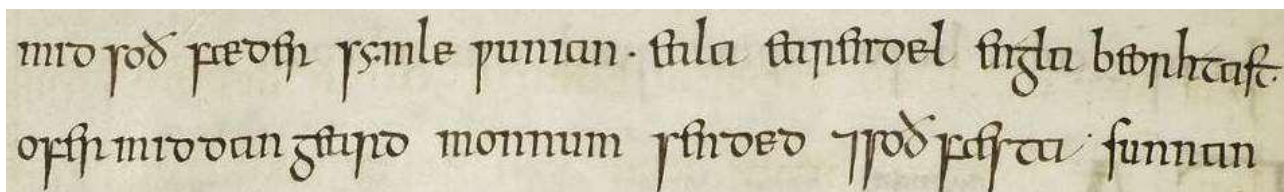 mid soð fæder symle punian · eala earendel engla beorhtast.
ofer middan geard monnum sended ⁊ soð fæsta sunnan